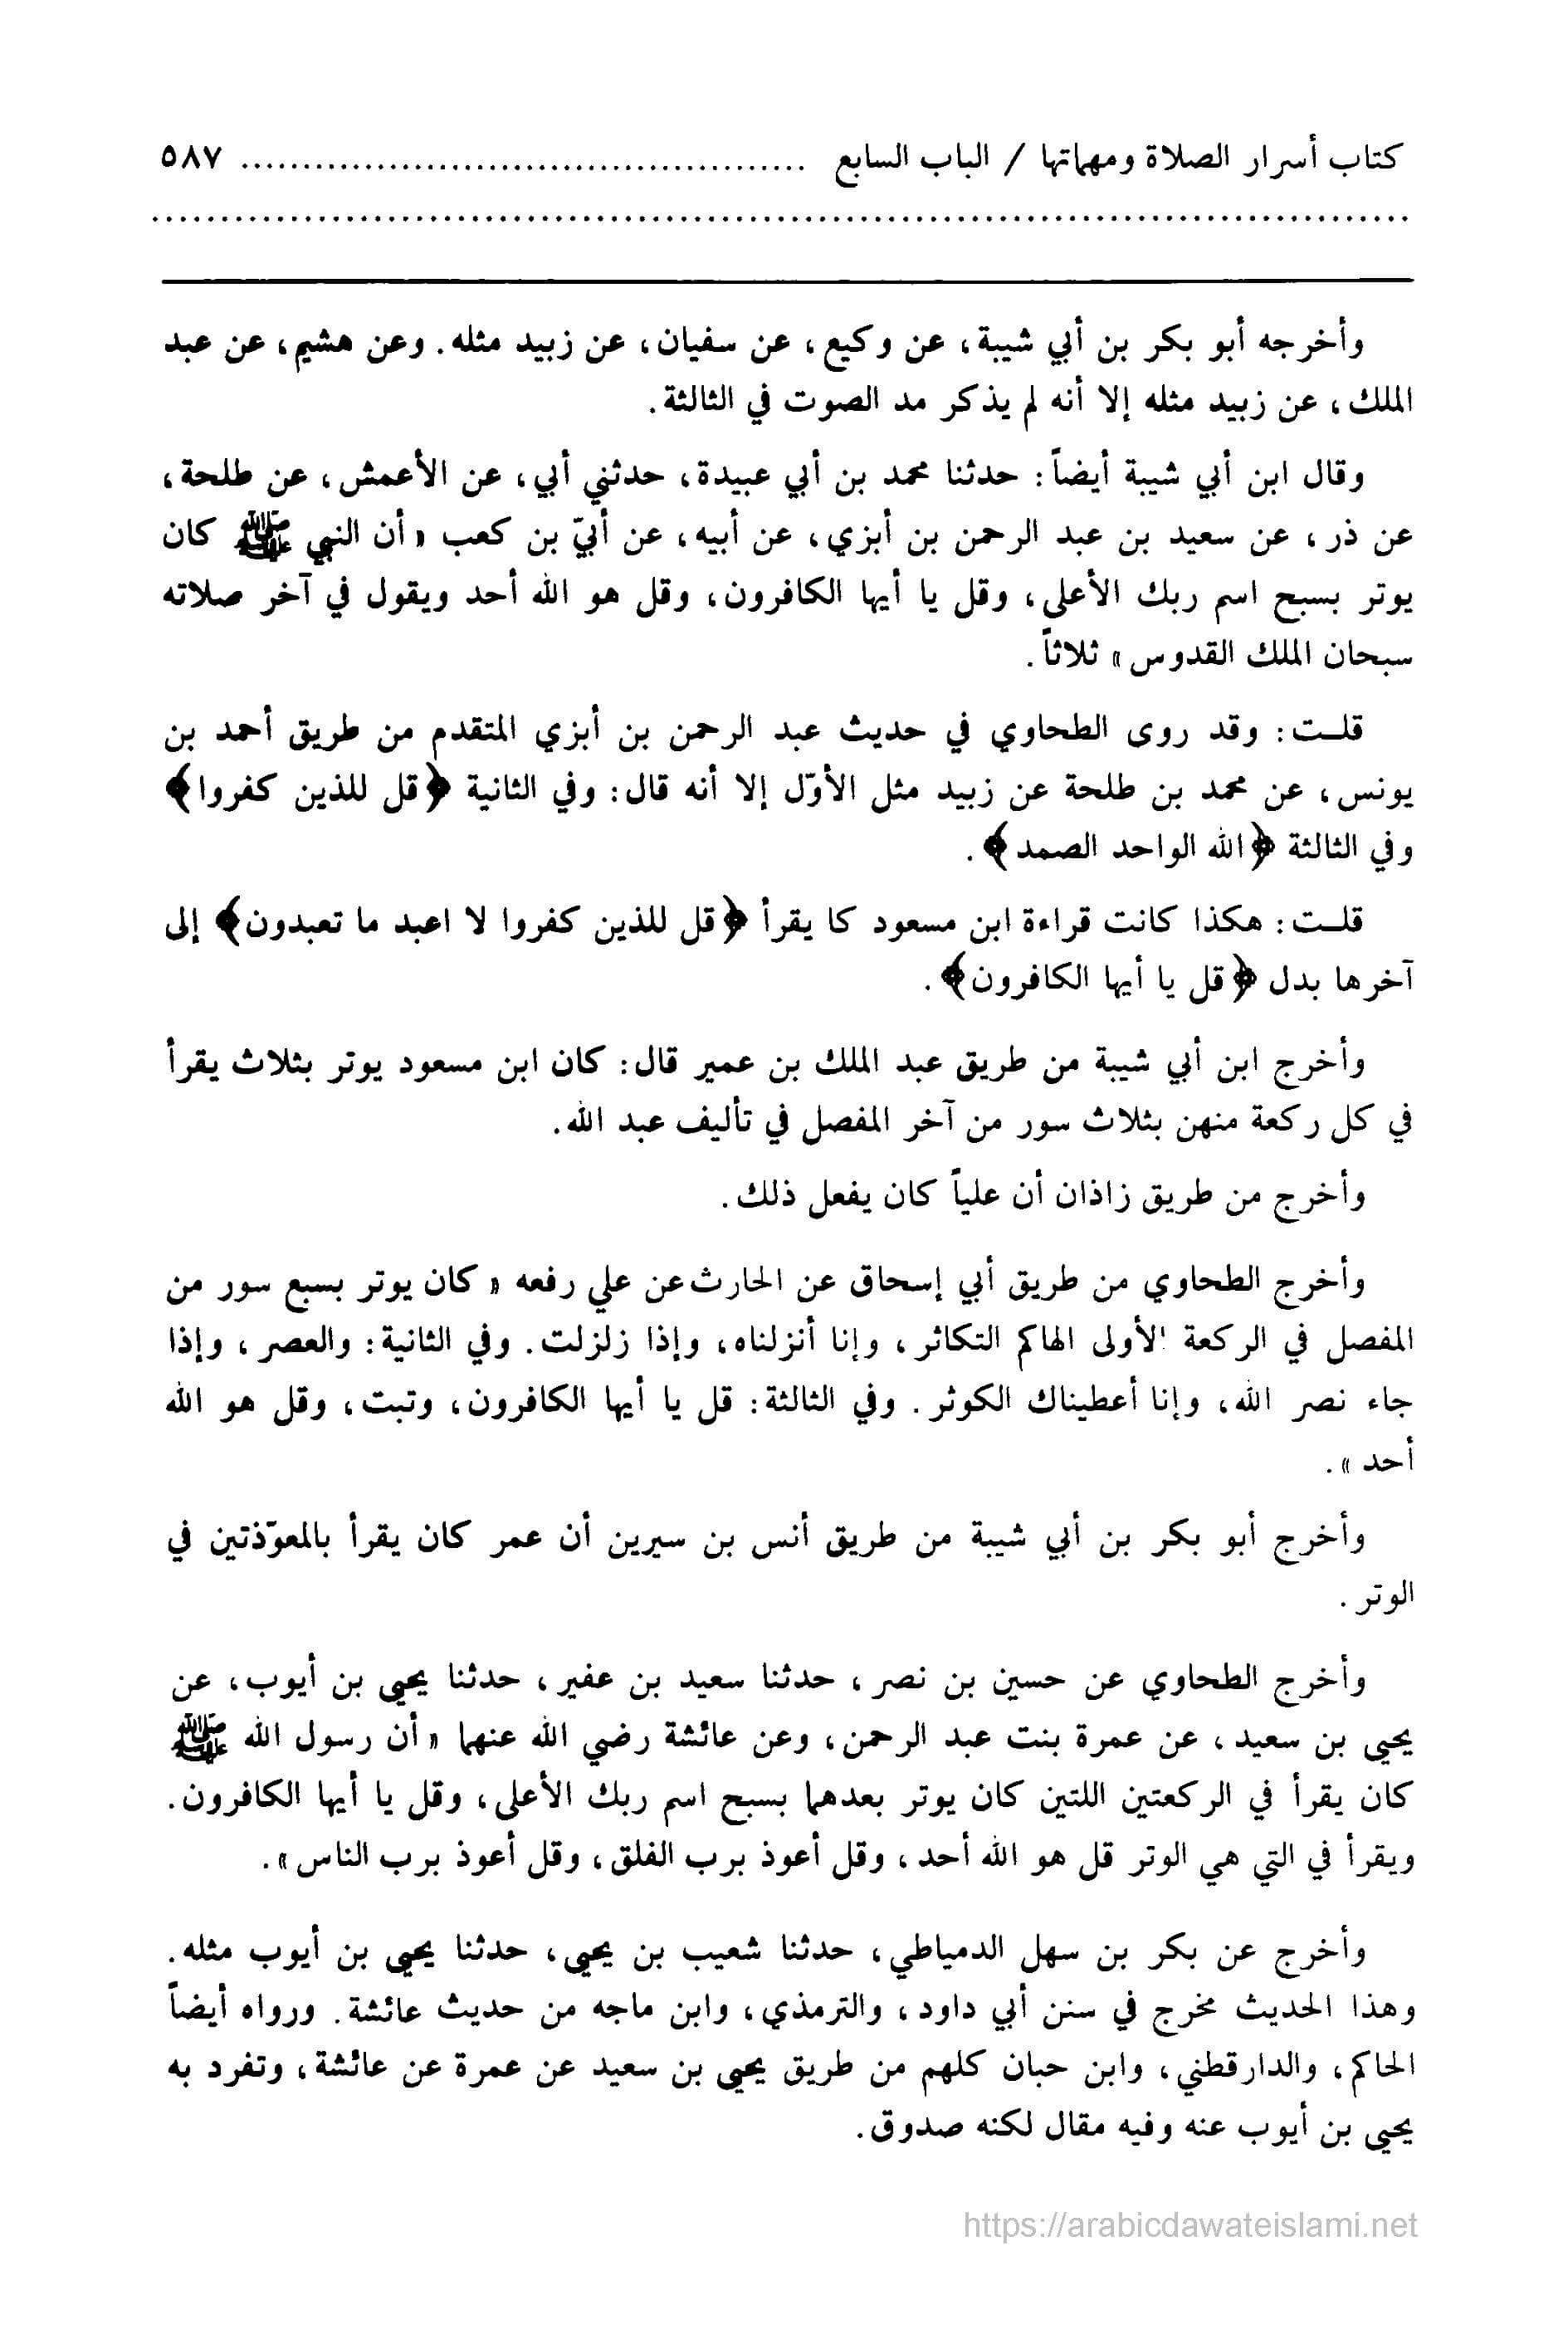 كتاب أسرار الصلاة ومهماتها / الباب السابع .............................................. ٥٨٧
..........................................................................................
وأخرجه أبو بكر بن أبي شيبة، عن وكيع، عن سفيان، عن زبيد مثله. وعن هشيم، عن عبد
الملك، عن زبيد مثله إلا أنه لم يذكر مد الصوت في الثالثة.
وقال ابن أبي شيبة أيضاً: حدثنا محمد بن أبي عبيدة، حدثني أبي، عن الأعمش، عن طلحة،
عن ذر، عن سعيد بن عبد الرحمن بن أبزي، عن أبيه، عن أبيّ بن كعب « أن النبي ﷺ كان
يوتر بسبح اسم ربك الأعلى، وقل يا أيها الكافرون، وقل هو الله أحد ويقول في آخر صلاته
سبحان الملك القدوس » ثلاثاً.
قلـت: وقد روى الطحاوي في حديث عبد الرحمن بن أبزي المتقدم من طريق أحمد بن
يونس، عن محمد بن طلحة عن زبيد مثل الأوّل إلا أنه قال: وفي الثانية ﴿قل للذين كفروا﴾
وفي الثالثة ﴿الله الواحد الصمد﴾.
قلـت: هكذا كانت قراءة ابن مسعود كا يقرأ ﴿قل للذين كفروا لا اعبد ما تعبدون﴾ إلى
آخرها بدل ﴿قل يا أيها الكافرون﴾.
وأخرج ابن أبي شيبة من طريق عبد الملك بن عمير قال: كان ابن مسعود يوتر بثلاث يقرأ
في كل ركعة منهن بثلاث سور من آخر المفصل في تأليف عبد الله.
وأخرج من طريق زاذان أن علياً كان يفعل ذلك.
وأخرج الطحاوي من طريق أبي إسحاق عن الحارث عن علي رفعه « كان يوتر بسبع سور من
المفصل في الركعة الأولى الهاكم التكاثر، وإنا أنزلناه، وإذا زلزلت. وفي الثانية: والعصر، وإذا
جاء نصر الله، وإنا أعطيناك الكوثر. وفي الثالثة: قل يا أيها الكافرون، وتبت، وقل هو الله
أحد ».
وأخرج أبو بكر بن أبي شيبة من طريق أنس بن سيرين أن عمر كان يقرأ بالمعوّذتين في
الوتر.
وأخرج الطحاوي عن حسين بن نصر، حدثنا سعيد بن عفير، حدثنا يحيى بن أيوب، عن
يحيى بن سعيد، عن عمرة بنت عبد الرحمن، وعن عائشة رضي الله عنهما « أن رسول الله ﷺ
كان يقرأ في الركعتين اللتين كان يوتر بعدهما بسبح اسم ربك الأعلى، وقل يا أيها الكافرون.
ويقرأ في التي هي الوتر قل هو الله أحد، وقل أعوذ برب الفلق، وقل أعوذ برب الناس ».
وأخرج عن بكر بن سهل الدمياطي، حدثنا شعيب بن يحيى، حدثنا يحيى بن أيوب مثله.
وهذا الحديث مخرج في سنن أبي داود، والترمذي، وابن ماجه من حديث عائشة. ورواه أيضاً
الحاكم، والدارقطني، وابن حبان كلهم من طريق يحيى بن سعيد عن عمرة عن عائشة، وتفرد به
يحيى بن أيوب عنه وفيه مقال لكنه صدوق.
https://arabicdawateislami.net